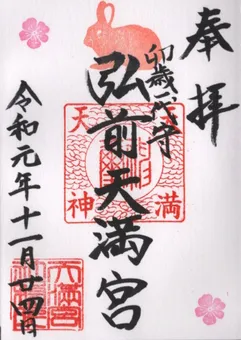 奉拝
卯歳一代守
弘前天満宮
天満
神
令和元年十一月廿四日
天満宮